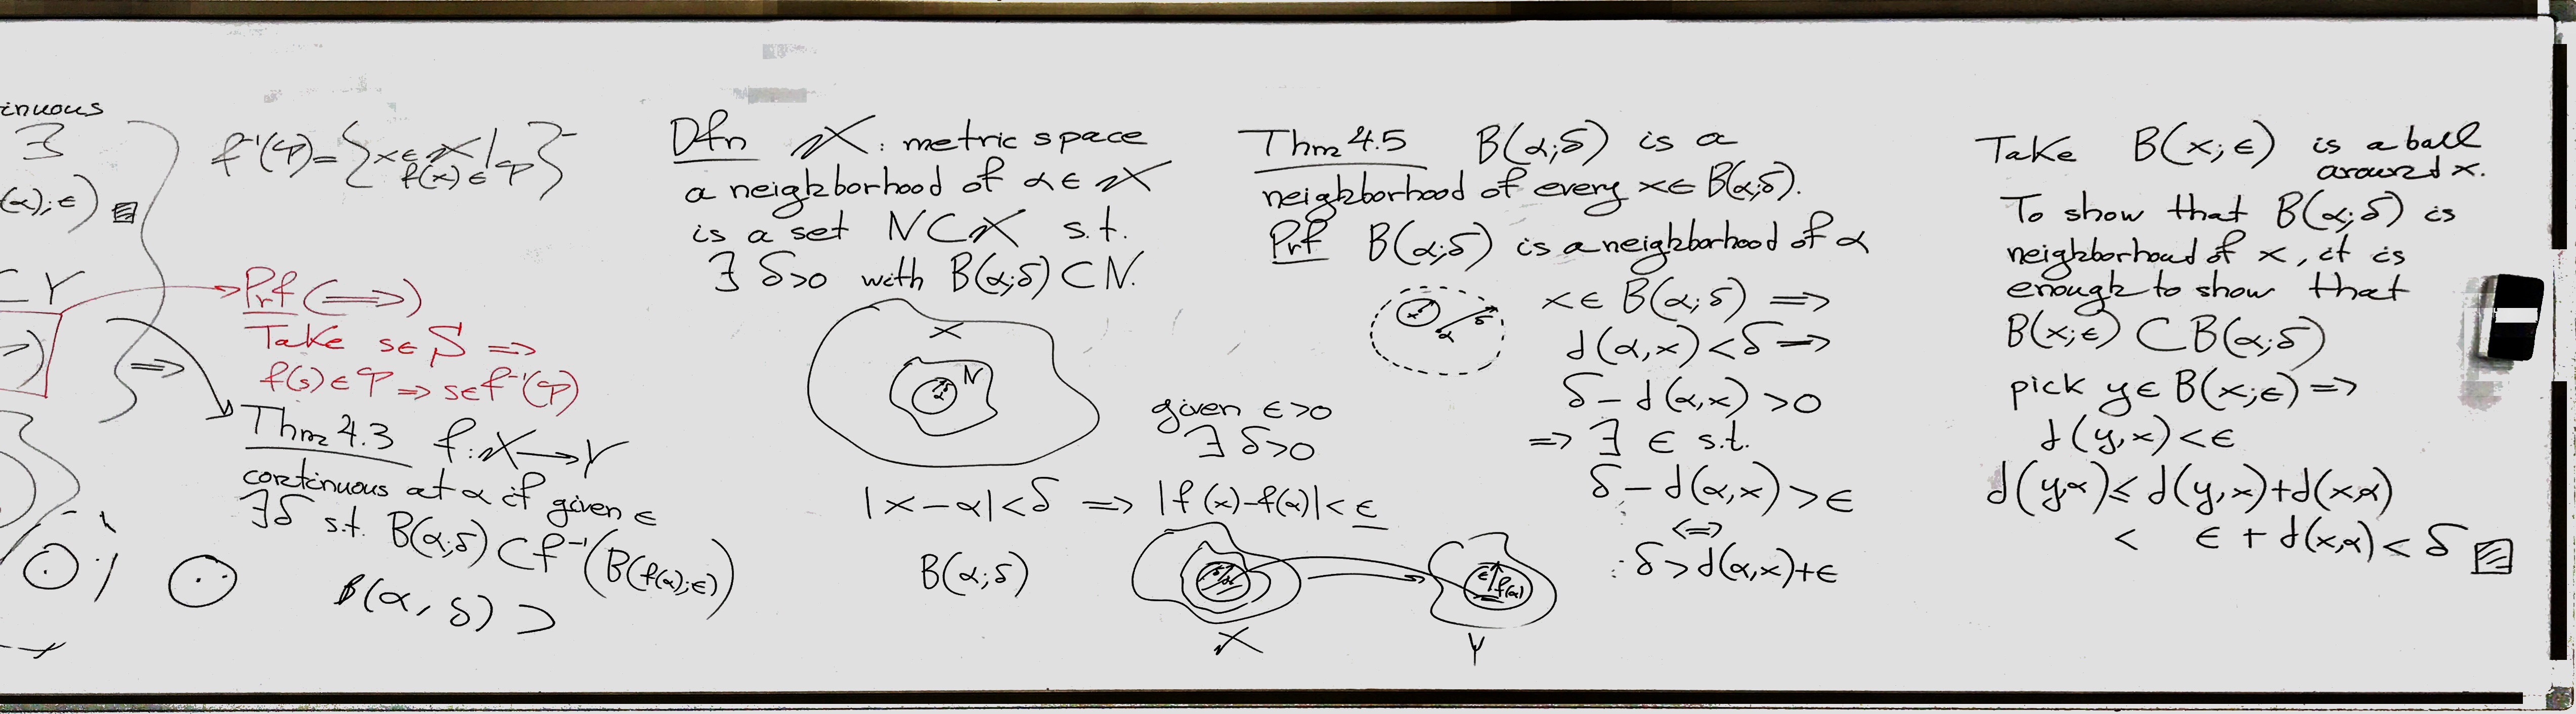 f⁻¹(T) = {x ∈ X | f(x) ∈ T}
Prf (⟹)
Take s ∈ S ⟹
f(s) ∈ T ⟹ s ∈ f⁻¹(T)
Thm 4.3 f: X → Y
continuous at α if given ϵ
∃ δ s.t. B(α;δ) ⊂ f⁻¹(B(f(α);ϵ))
B(α, δ) ⊃
Dfn X: metric space
a neighborhood of α ∈ X
is a set N ⊂ X s.t.
∃ δ>0 with B(α;δ) ⊂ N.
X
N
given ϵ>0
∃ δ>0
|x-α|<δ ⟹ |f(x)-f(α)|<ϵ
B(α;δ)
f(α)
X
Y
Thm 4.5 B(α;δ) is a
neighborhood of every x ∈ B(α;δ).
Prf B(α;δ) is a neighborhod of α
x ∈ B(α;δ) ⟹
d(α,x) < δ ⟹
δ - d(α,x) > 0
⟹ ∃ ϵ s.t.
δ - d(α,x) > ϵ
⟺
δ > d(α,x)+ϵ
Take B(x;ϵ) is a ball
around x.
To show that B(α;δ) is
neighborhood of x, it is
enough to show that
B(x;ϵ) ⊂ B(α;δ)
pick y ∈ B(x;ϵ) ⟹
d(y,x) < ϵ
d(y,α) ≤ d(y,x)+d(x,α)
< ϵ + d(x,α) < δ